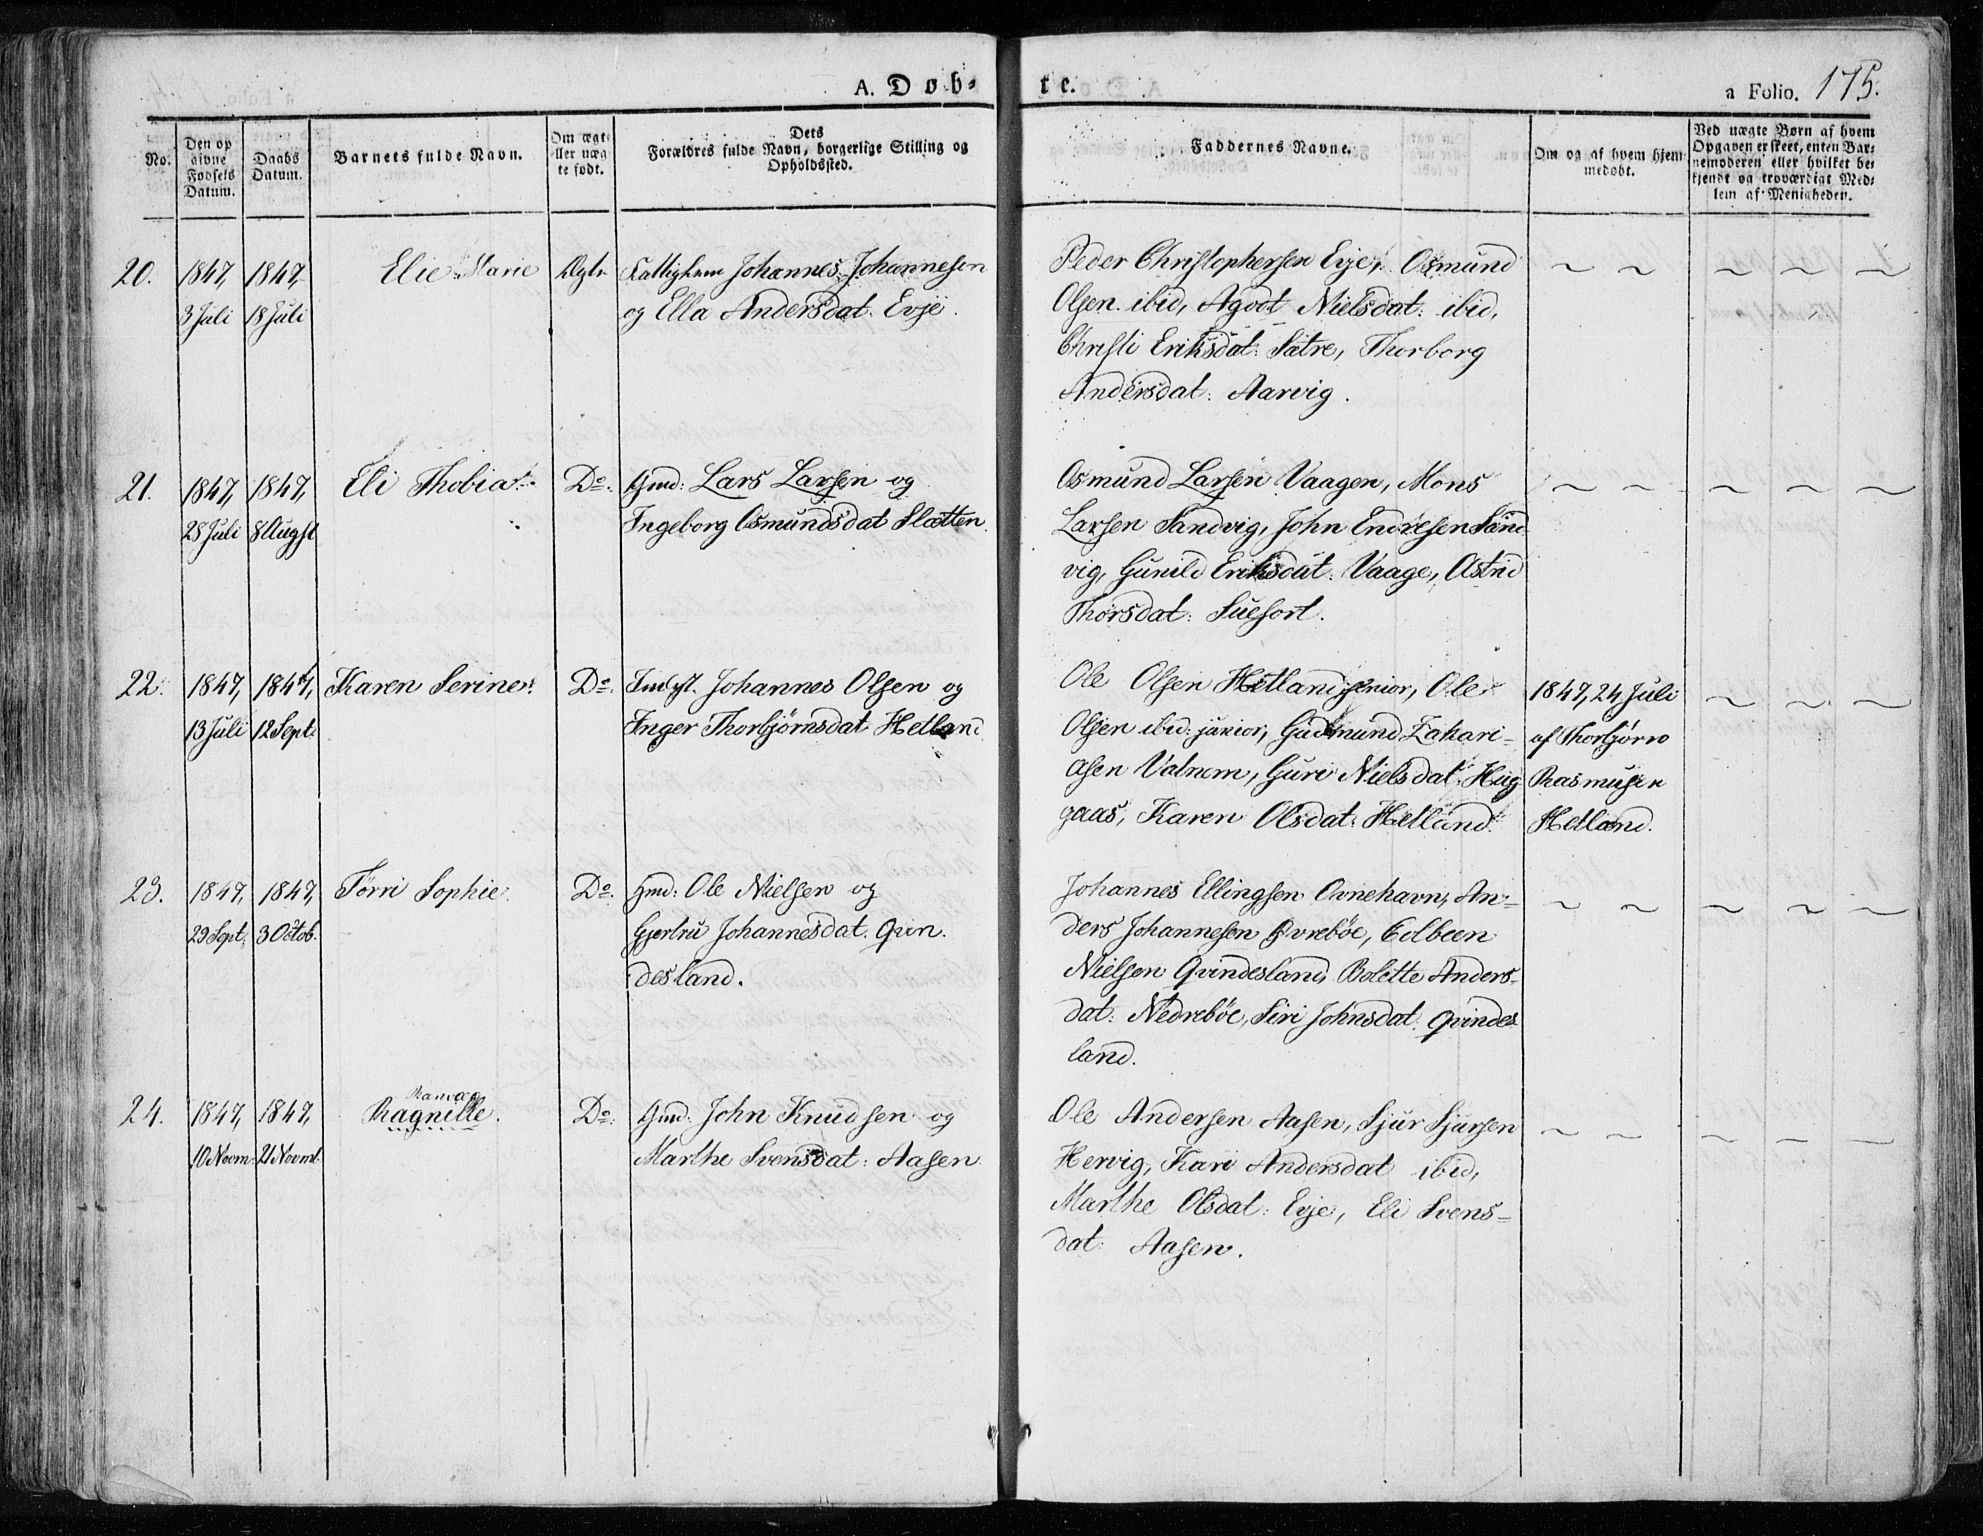 A. Døb-
te.
a Folio. 175.
No.
Den op
givne
Fødsels
Datum.
Daabs
Datum.
Barnets fulde Navn.
Om ægt-
eller uæg-
te født.
Dets
Forældres fulde Navn, borgerlige Stilling og
Opholdssted.
Faddernes Navne.
Om og af hvem hjem-
medøbt.
Ved uægte Børn af hvem
Opgaven er skeet, enten Bar-
nemoderen eller hvilket be-
kjendt og troværdigt Med-
lem af Menigheden.
20.
1847,
3 Juli
1847,
18 Juli
Elie Marie
Ægte
Fattiglem Johannes Johannesen
og Ella Andersdat: Evje.
Peder Christophersen Evje, Osmund
Olsen ibid, Agodt Nielsdat: ibid,
Christi Eriksdat: Sætre, Thorborg
Andersdat: Aarvig.
21.
1847,
28 Juli
1847,
8 Augst
Eli Thobia
Do:
Gmd: Lars Larsen og
Ingeborg Osmundsdat Slætten.
Osmund Larsen Vaagen, Mons
Larsen Sandvig, John Endresen Sand-
vig, Gunild Eriksdat: Vaage, Astrid
Thorsdat: Suefort.
22.
1847,
13 Juli
1847,
12 Sept:
Karen Serine
Do:
Indst. Johannes Olsen og
Inger Thorbjørnsdat Hetland
Ole Olsen Hetland senior, Ole
Olsen ibid: junior, Gudmund Zakari-
asen Valnem, Guri Nielsdat: Hug
gaas, Karen Olsdat: Hetland.
1847, 24 Juli
af Thorbjørn
Rasmusen
Hetland.
23.
1847,
29 Sept.
1847,
3 Octob.
Tørri Sophie.
Do:
Gmd: Ole Nielsen og
Gjertru Johannesdat. Qvin
desland.
Johannes Ellingsen Ovnehavn, An-
ders Johannesen Øvrebøe, Colbeen
Nielsen Qvindesland, Bolette Anders-
dat: Nedrebøe, Siri Johnsdat: Qvindes
land.
24.
1847,
10 Novm:
1847,
21 Novmb.
Ranvæg
Ragnille.
Do:
Gmd: John Knudsen og
Marthe Svensdat: Aasen
Ole Andersen Aasen, Sjur Sjursen
Hervig, Kari Andersdat ibid,
Marthe Olsdat: Evje, Eli Svens-
dat: Aasen.